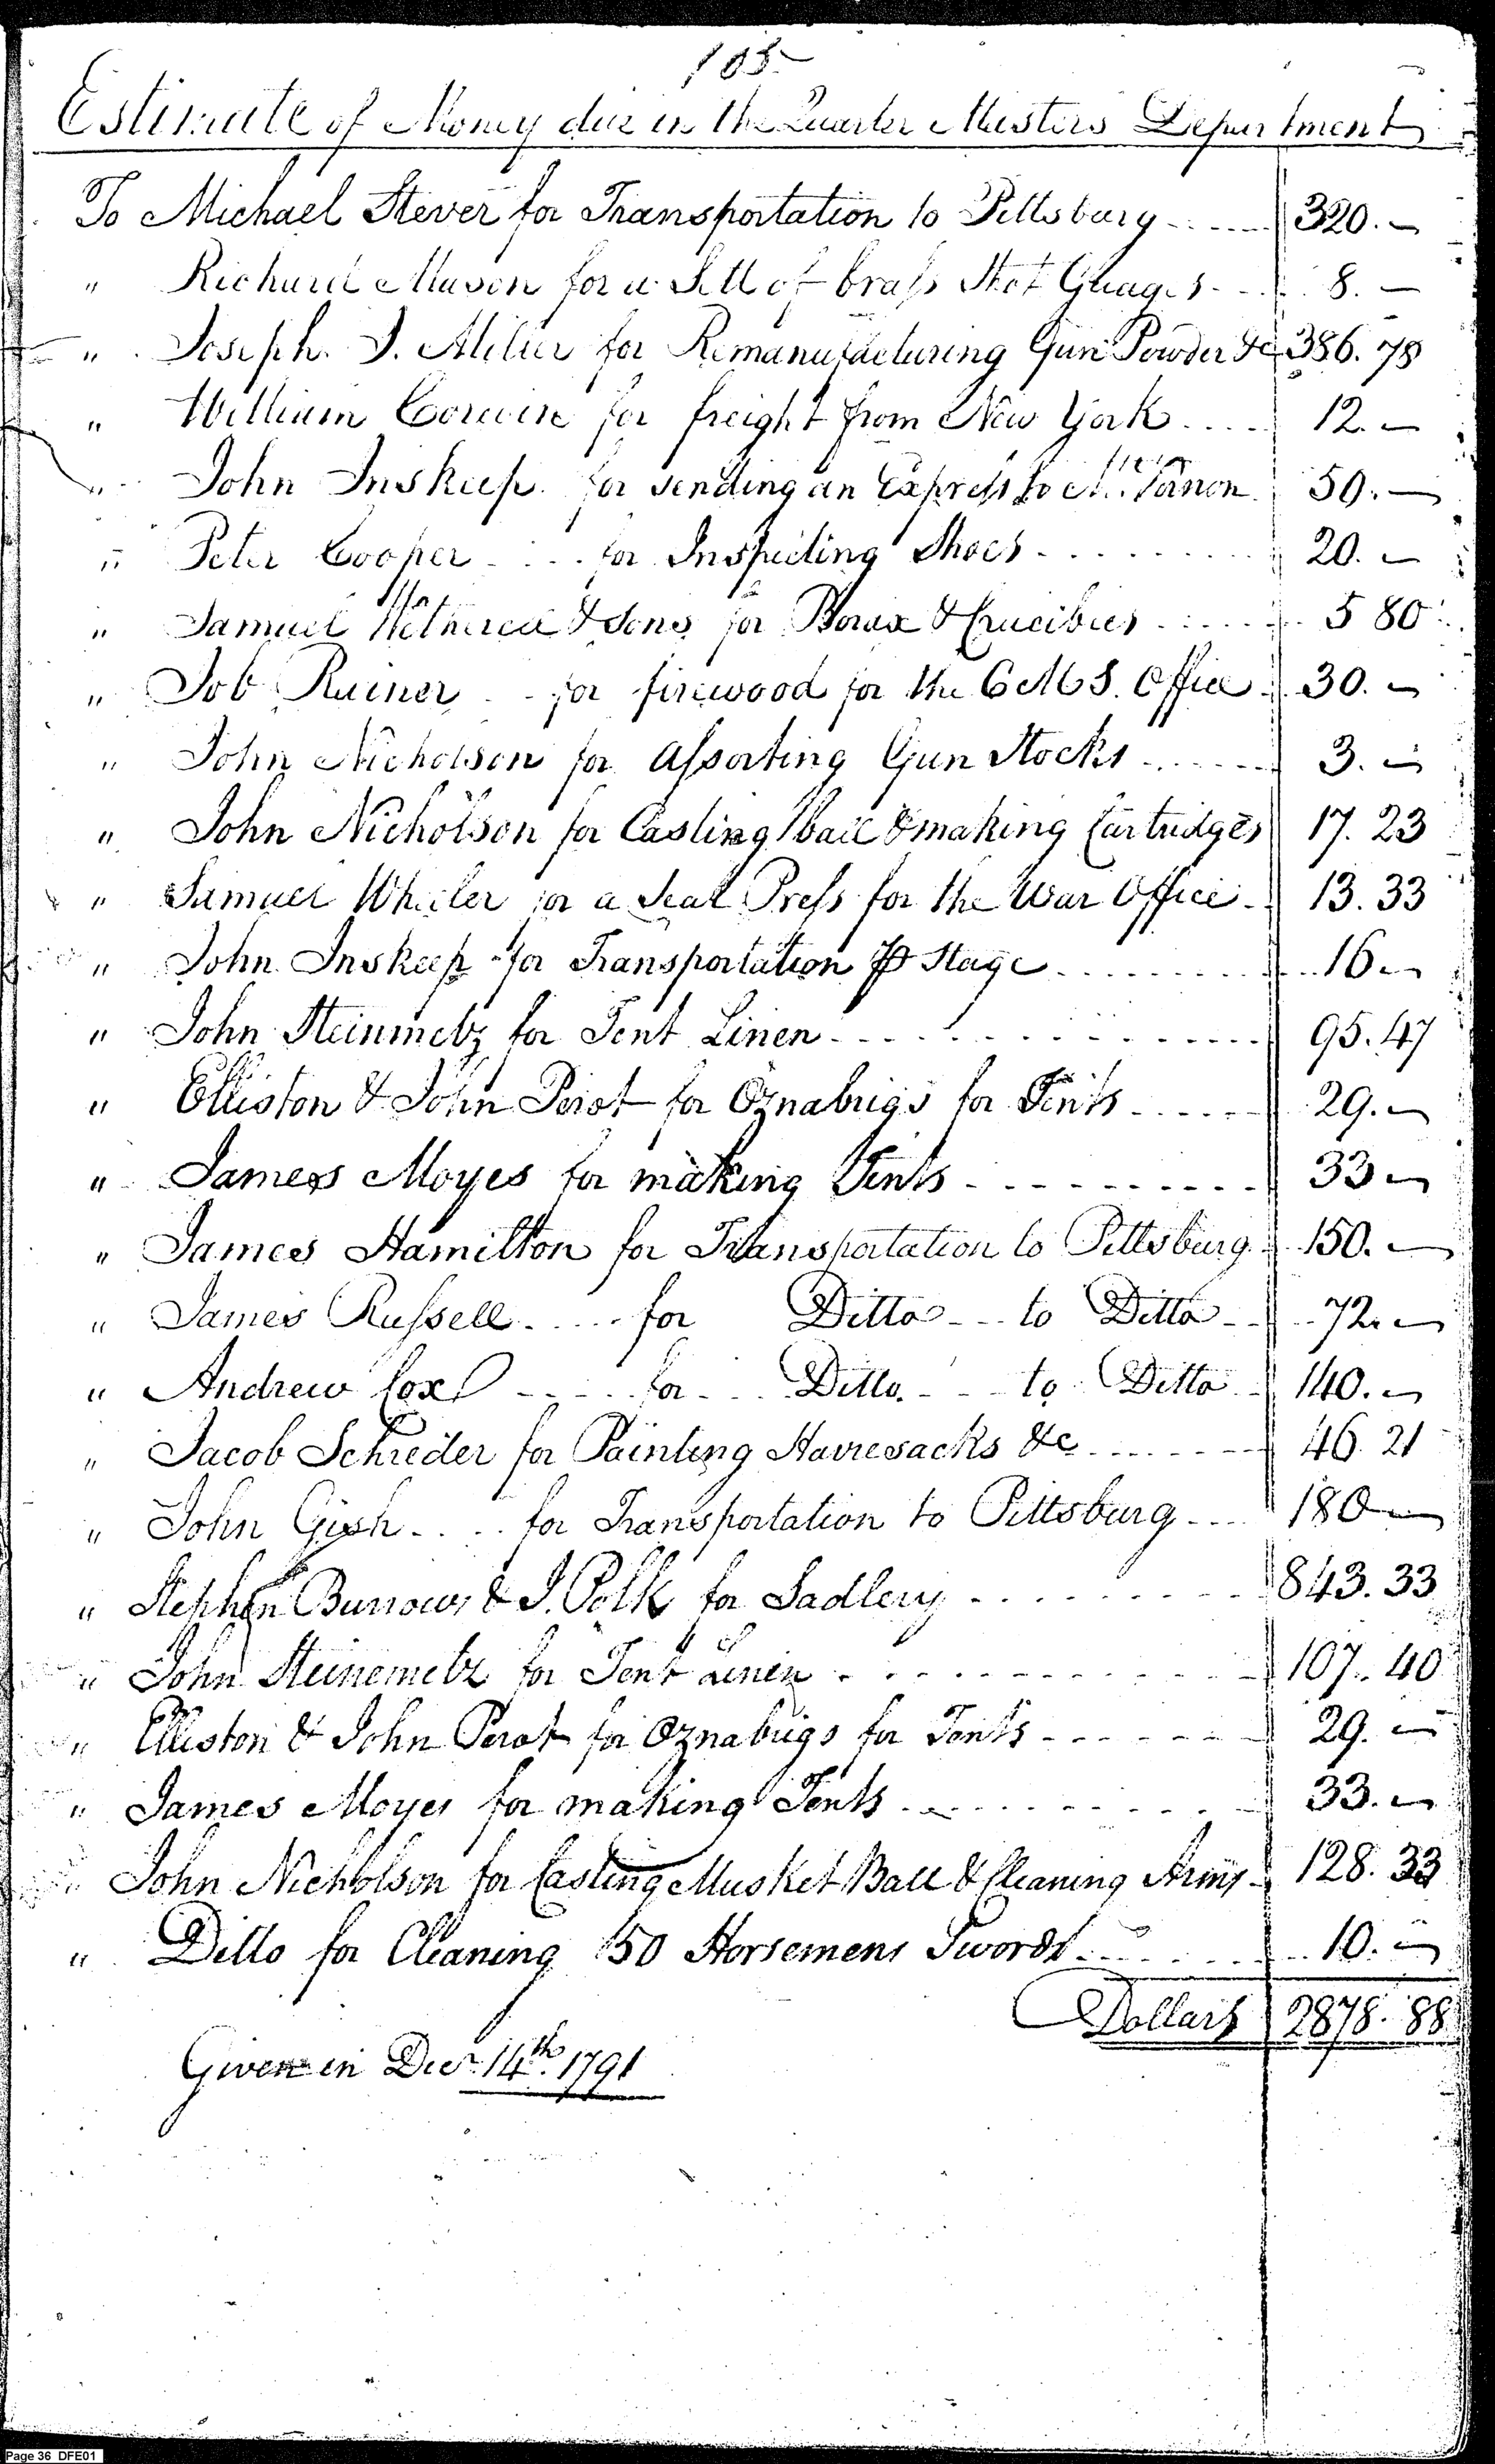 105
Estimate of Money due in the Quarter Masters Department
To Michael Stever for Transportation to Pittsburg 320. –
" Richard Mason for a Sett of brass Shot Guages 8. –
" Joseph. J. Miller for Remanufacturing Gun Powder &c 386. 78
" William Corwin for freight from New York 12. –
" John Inskeep for sending an Express to Mt. Vernon 50. –
" Peter Cooper for Inspecting Shoes 20. –
" Samuel Wetherill & Sons for Borax & Crucibles 5 80
" Job Rainer for firewood for the Office 30. –
" John Nicholson for Assorting Gun Stocks 3. –
" John Nicholson for Casting ball & making Cartridges 17. 23
" Samuel Wheeler for a Seal Press for the War Office 13. 33
" John Inskeep for Transportation ⅌ Stage 16 –
" John Steinmetz for Tent Linen 95. 47
" Elliston & John Perot for Oznabrigs for Tents 29. –
" James Moyes for making Tents 33 –
" James Hamilton for Transportation to Pittsburg 150. –
" James Russell for Ditto to Ditto 72. –
" Andrew Cox for Ditto to Ditto 140. –
" Jacob Schreder for Painting Havresacks &c 46. 21
" John Gish for Transportation to Pittsburg 180 –
" Stephen Burrows & J. Polk for Sadlery 843. 33
" John Steinemetz for Tent Linen 107. 40
" Elliston & John Perot for Oznabrigs for Tents 29. –
" James Moyes for making Tents 33. –
" John Nicholson for Casting Musket Ball & Cleaning Arms 128. 33
" Ditto for Cleaning 150 Horsemens Swords 10. –
Dollars 2878. 88
Given in Decr. 14th. 1791
Page 36 DFE01